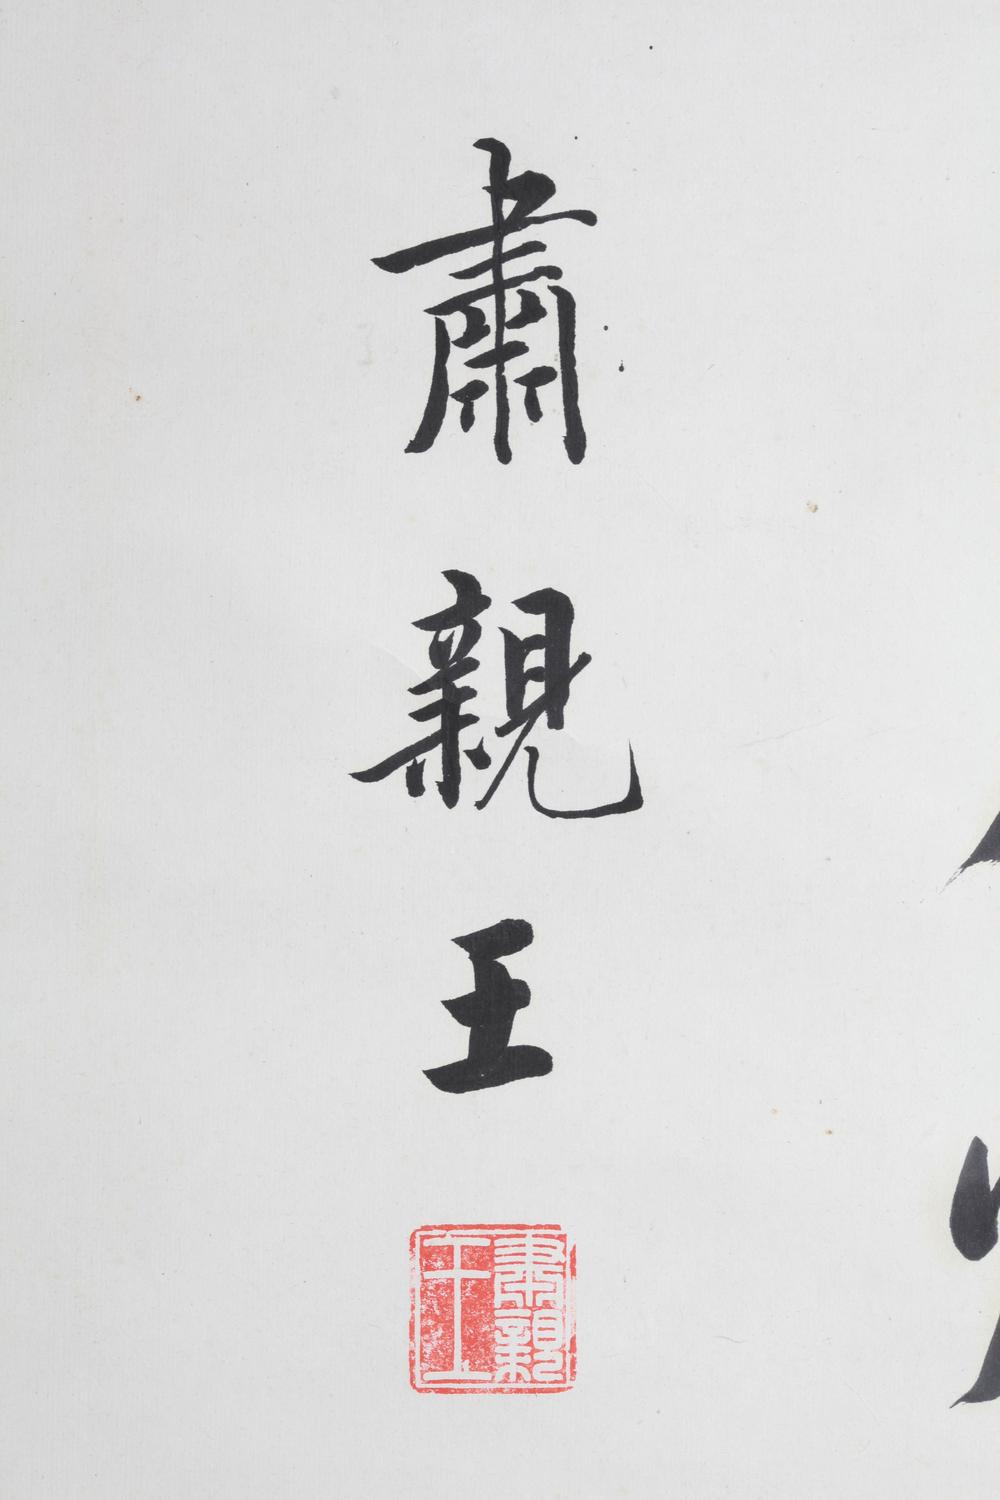 肅親王
肅親王